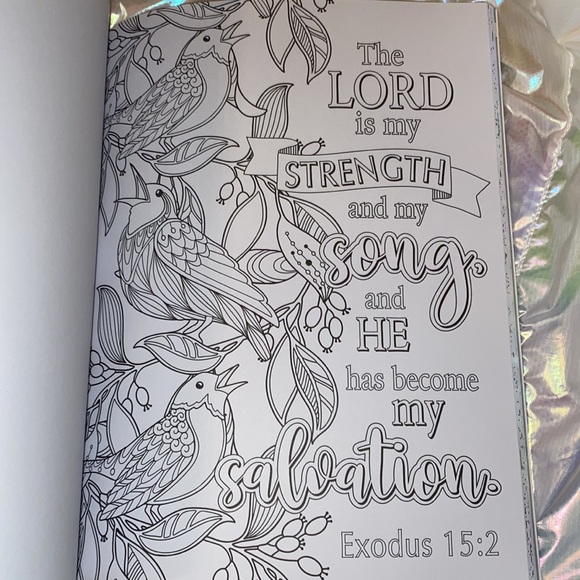 The
LORD
is my
STRENGTH
and my
song,
and
HE
has become
my
salvation.
Exodus 15:2